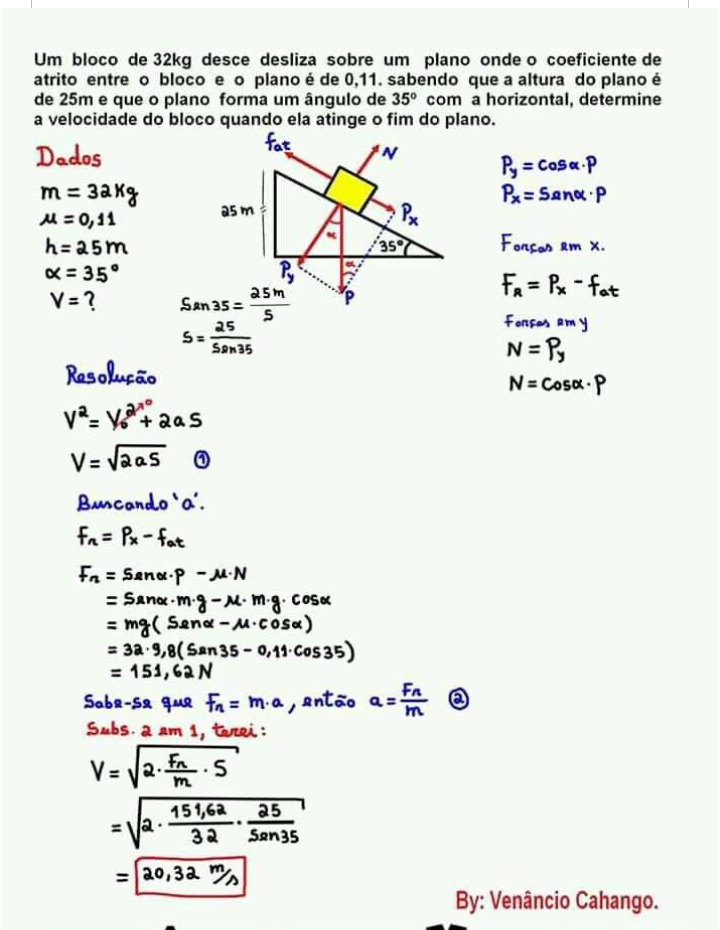 Um bloco de 32kg desce desliza sobre um plano onde o coeficiente de
atrito entre o bloco e o plano é de 0,11. sabendo que a altura do plano é
de 25m e que o plano forma um ângulo de 35º com a horizontal, determine
a velocidade do bloco quando ela atinge o fim do plano.
Dados
m = 32Kg
μ = 0,11
h = 25m
α = 35°
V = ?
fat
N
25m
Px
35°
α
α
Py
P
Sen35 = 25m/S
S = 25/Sen35
Py = Cosα·P
Px = Senα·P
Forças em x.
FR = Px - fat
Forças em y
N = Py
N = Cosα·P
Resolução
V² = V₀²→0 + 2aS
V = √2aS ①
Buscando 'a'.
Fr = Px - fat
Fr = Senα·P - μ·N
= Senα·m·g - μ·m·g·cosα
= mg( Senα - μ·cosα)
= 32·9,8(Sen35 - 0,11·Cos35)
= 151,62N
Sabe-se que Fr = m·a, então a = Fr/m ②
Subs. 2 em 1, terei:
V = √2·Fr/m·S
= √2·151,62/32·25/Sen35
= 20,32 m/s
By: Venâncio Cahango.